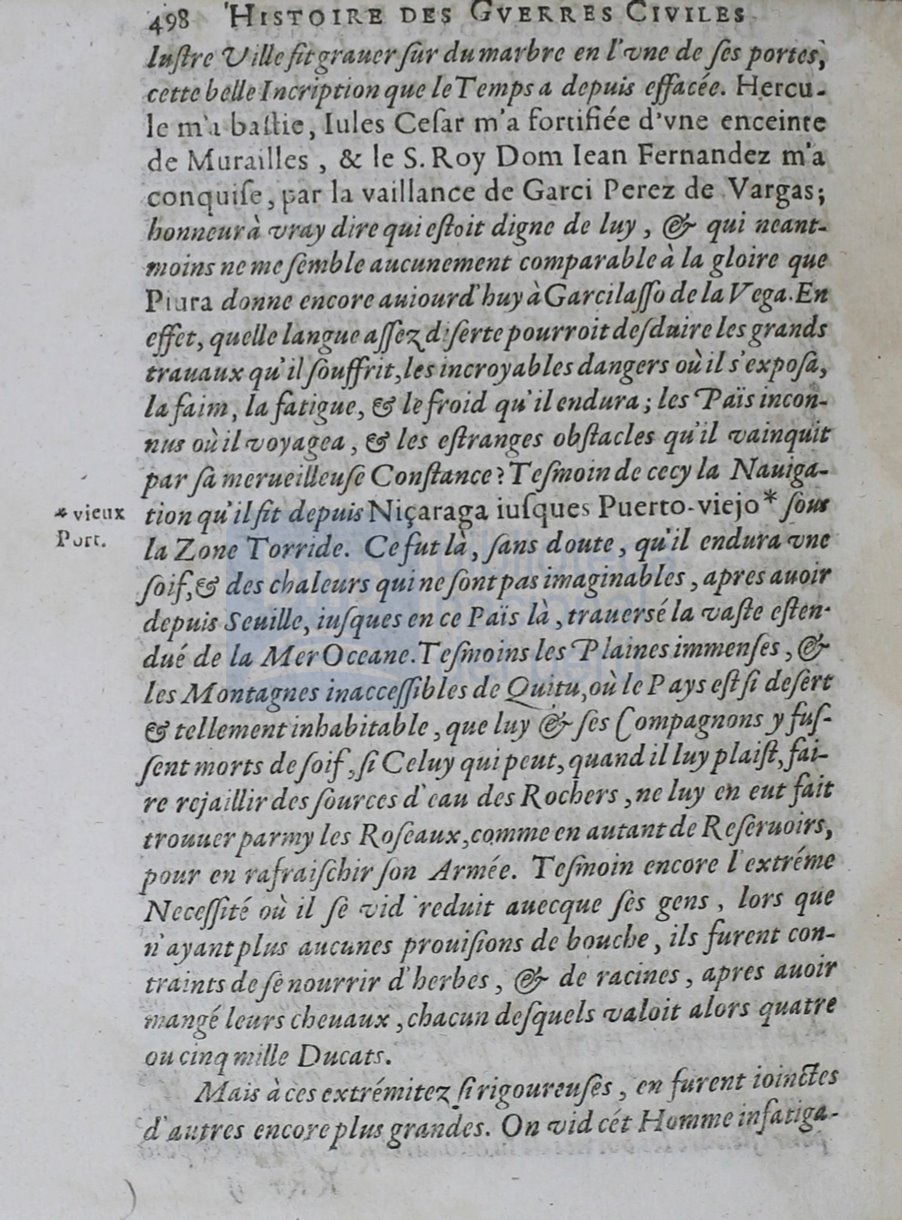 498 HISTOIRE DES GVERRES CIVILES
lustre Ville fit grauer sur du marbre en l'vne de ses portes,
cette belle Incription que le Temps a depuis effacée. Hercu-
le m'a bastie, Iules Cesar m'a fortifiée d'vne enceinte
de Murailles, & le S. Roy Dom Iean Fernandez m'a
conquise, par la vaillance de Garci Perez de Vargas;
honneur à vray dire qui estoit digne de luy, & qui neant-
moins ne me semble aucunement comparable à la gloire que
Piura donne encore auiourd'huy à Garcilasso de la Vega. En
effet, quelle langue assez diserte pourroit desduire les grands
trauaux qu'il souffrit, les incroyables dangers où il s'exposa,
la faim, la fatigue, & le froid qu'il endura; les Païs incon-
nus où il voyagea, & les estranges obstacles qu'il vainquit
par sa merueilleuse Constance? Tesmoin de cecy la Nauiga-
tion qu'il fit depuis Niçaraga iusques Puerto-viejo* sous
* vieux
Port.
la Zone Torride. Ce fut là, sans doute, qu'il endura vne
soif, & des chaleurs qui ne sont pas imaginables, apres auoir
depuis Seuille, iusques en ce Païs là, trauersé la vaste esten-
dué de la Mer Oceane. Tesmoins les Plaines immenses, &
les Montagnes inaccessibles de Quitu, où le Pays est si desert
& tellement inhabitable, que luy & ses Compagnons y fus-
sent morts de soif, si Celuy qui peut, quand il luy plaist, fai-
re rejaillir des sources d'eau des Rochers, ne luy en eut fait
trouuer parmy les Roseaux, comme en autant de Reseruoirs,
pour en rafraischir son Armée. Tesmoin encore l'extréme
Necessité où il se vid reduit auecque ses gens, lors que
n'ayant plus aucunes prouisions de bouche, ils furent con-
traints de se nourrir d'herbes, & de racines, apres auoir
mangé leurs cheuaux, chacun desquels valoit alors quatre
ou cinq mille Ducats.
Mais à ces extrémitez si rigoureuses, en furent ioinctes
d'autres encore plus grandes. On vid cét Homme infatiga-